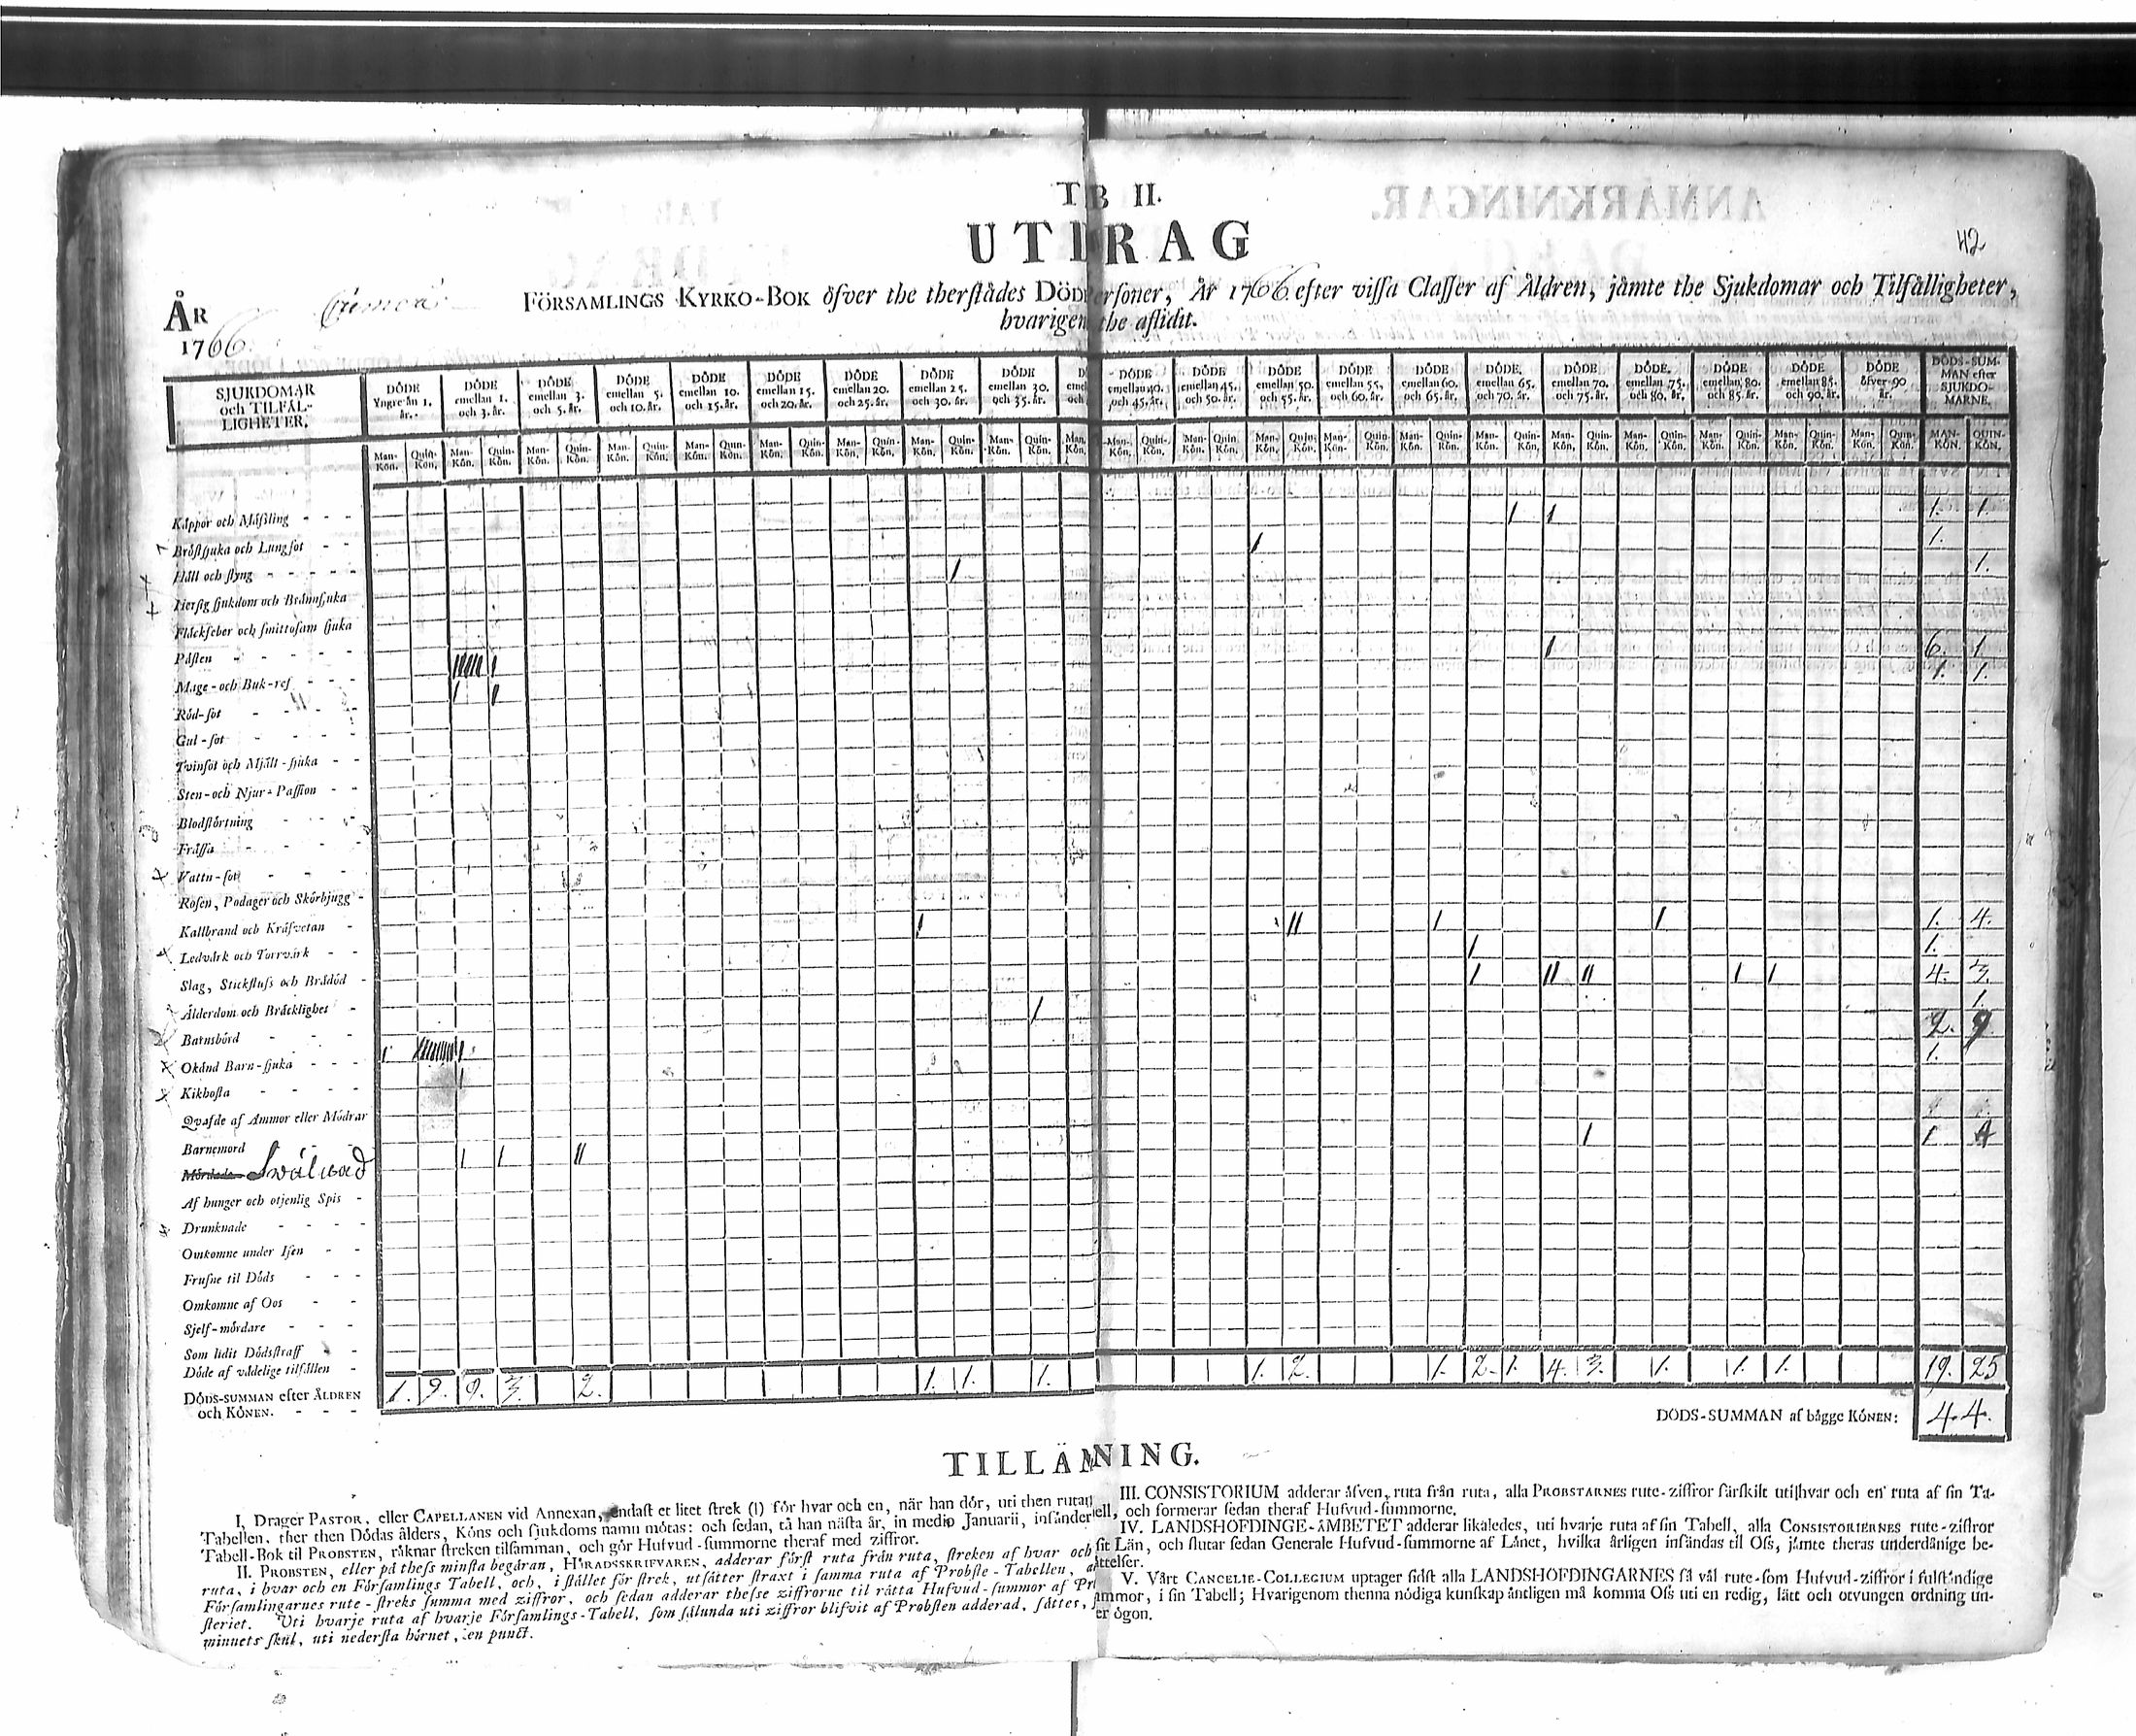 TB II.
UTDRAG
42
ÅR
1766.
FÖRSAMLINGS KYRKO-BOK öfver the therstådes DÖDE Personer, År 1766 efter vissa Classer af Åldren, jämte the Sjukdomar och Tilfälligheter,
hvarigenom the aflidit.
SJUKDOMAR och TILFÄL-LIGHETER.
DÖDE Yngre än 1. år.
DÖDE emellan 1. och 3. år.
DÖDE emellan 3. och 5. år.
DÖDE emellan 5. och 10. år.
DÖDE emellan 10. och 15. år.
DÖDE emellan 15. och 20. år.
DÖDE emellan 20. och 25. år.
DÖDE emellan 25. och 30. år.
DÖDE emellan 30. och 35. år.
DÖDE emellan 40. och 45. år.
DÖDE emellan 45. och 50. år.
DÖDE emellan 50. och 55. år.
DÖDE emellan 55. och 60. år.
DÖDE emellan 60. och 65. år.
DÖDE emellan 65. och 70. år.
DÖDE emellan 70. och 75. år.
DÖDE emellan 75. och 80. år.
DÖDE emellan 80. och 85. år.
DÖDE emellan 85. och 90. år.
DÖDE öfver 90 år.
DÖDS-SUM-MAN efter SJUKDO-MARNE.
Man-Kön. Quin-Kön. Man-Kön. Quin-Kön. Man-Kön. Quin-Kön. Man-Kön. Quin-Kön. Man-Kön. Quin-Kön. Man-Kön. Quin-Kön. Man-Kön. Quin-Kön. Man-Kön. Quin-Kön. Man-Kön. Quin-Kön. Man-Kön. Man-Kön. Quin-Kön. Man-Kön. Quin-Kön. Man-Kön. Quin-Kön. Man-Kön. Quin-Kön. Man-Kön. Quin-Kön. Man-Kön. Quin-Kön. Man-Kön. Quin-Kön. Man-Kön. Quin-Kön. Man-Kön. Quin-Kön. Man-Kön. Quin-Kön. Man-Kön. Quin-Kön. MAN-KÖN. QUIN-KÖN.
Koppor och Mäßling | | 1. 1.
Bröstsjuka och Lungsot | 1.
Håll och styng | 1.
Hetsig sjukdom och Brännsjuka
Fläckfeber och smittosam sjuka
Pästen ||||| | | 6. 1
Mage- och Buk-ref | || 1. 1.
Röd-sot
Gul-sot
Tvinsot och Mjält-sjuka
Sten- och Njur-Passion
Blodstörtning
Frässa
Vattu-sot
Rosen, Podager och Skörbjugg
Kallbrand och Kräfvetan | || | | 1. 4.
Ledvärk och Torrvärk | 1.
Slag, Stickfluss och Brådöd | || || | | 4. 3.
Ålderdom och Bräcklighet | 1.
Barnsbörd 2. 9
Okänd Barn-sjuka 1.
Kikhosta
Qvafde af Ammor eller Mödrar
Barnemord | 1 4
Mördade
Af hunger och otjenlig Spis
Drunknade
Omkomne under Isen
Frusne til Döds
Omkomne af Oos
Sjelf-mördare
Som lidit Dödsstraff
Döde af vådelige tilfällen
DÖDS-SUMMAN efter ÅLDREN och KÖNEN. 1. 9. 9. 3. 2. 1. 1. 1. 1. 2. 1. 2. 1. 4. 3. 1. 1. 1. 19. 25
DÖDS-SUMMAN af bägge KÖNEN: 44.
TILLÄMNING.
I. Drager PASTOR, eller CAPELLANEN vid Annexan, endast et litet strek (|) för hvar och en, när han dör, uti then rutan
Tabellen, ther then Dödas ålders, Köns och sjukdoms namn mötas: och sedan, tå han nästa år, in medio Januarii, insänder
Tabell-Bok til PROBSTEN, räknar streken tilsamman, och gör Hufvud-summorne theraf med ziffror.
II. PROBSTEN, eller på thess minsta begäran, HÄRADSSKRIFVAREN, adderar först ruta från ruta, streken af hvar och
ruta, i hvar och en Församlings Tabell, och, i stället för strek, utsätter straxt i samma ruta af Probste-Tabellen,
Församlingarnes rute-streks summa med ziffror, och sedan adderar thesse ziffrorne til rätta Hufvud-summor af
steriet. Uti hvarje ruta af hvarje Församlings-Tabell, som sålunda uti ziffror blifvit af Probsten adderad, sättes,
minnets skul, uti nedersta hörnet, en punct.
III. CONSISTORIUM adderar äfven, ruta från ruta, alla PROBSTARNES rute-ziffror särskilt uti hvar och en ruta af sin Ta-
ell, och formerar sedan theraf Hufvud-summorne.
IV. LANDSHÖFDINGE-ÄMBETET adderar likaledes, uti hvarje ruta af sin Tabell, alla CONSISTORIERNES rute-ziffror
sit Län, och slutar sedan Generale Hufvud-summorne af Länet, hvilka årligen insändas til Oss, jämte theras underdånige be-
rättelser.
V. Vårt CANCELIE-COLLEGIUM uptager sidst alla LANDSHÖFDINGARNES så väl rute- som Hufvud-ziffror i fulständige
summor, i sin Tabell; Hvarigenom thenna nödiga kunskap äntligen må komma Oss uti en redig, lätt och otvungen ordning un-
der ögon.